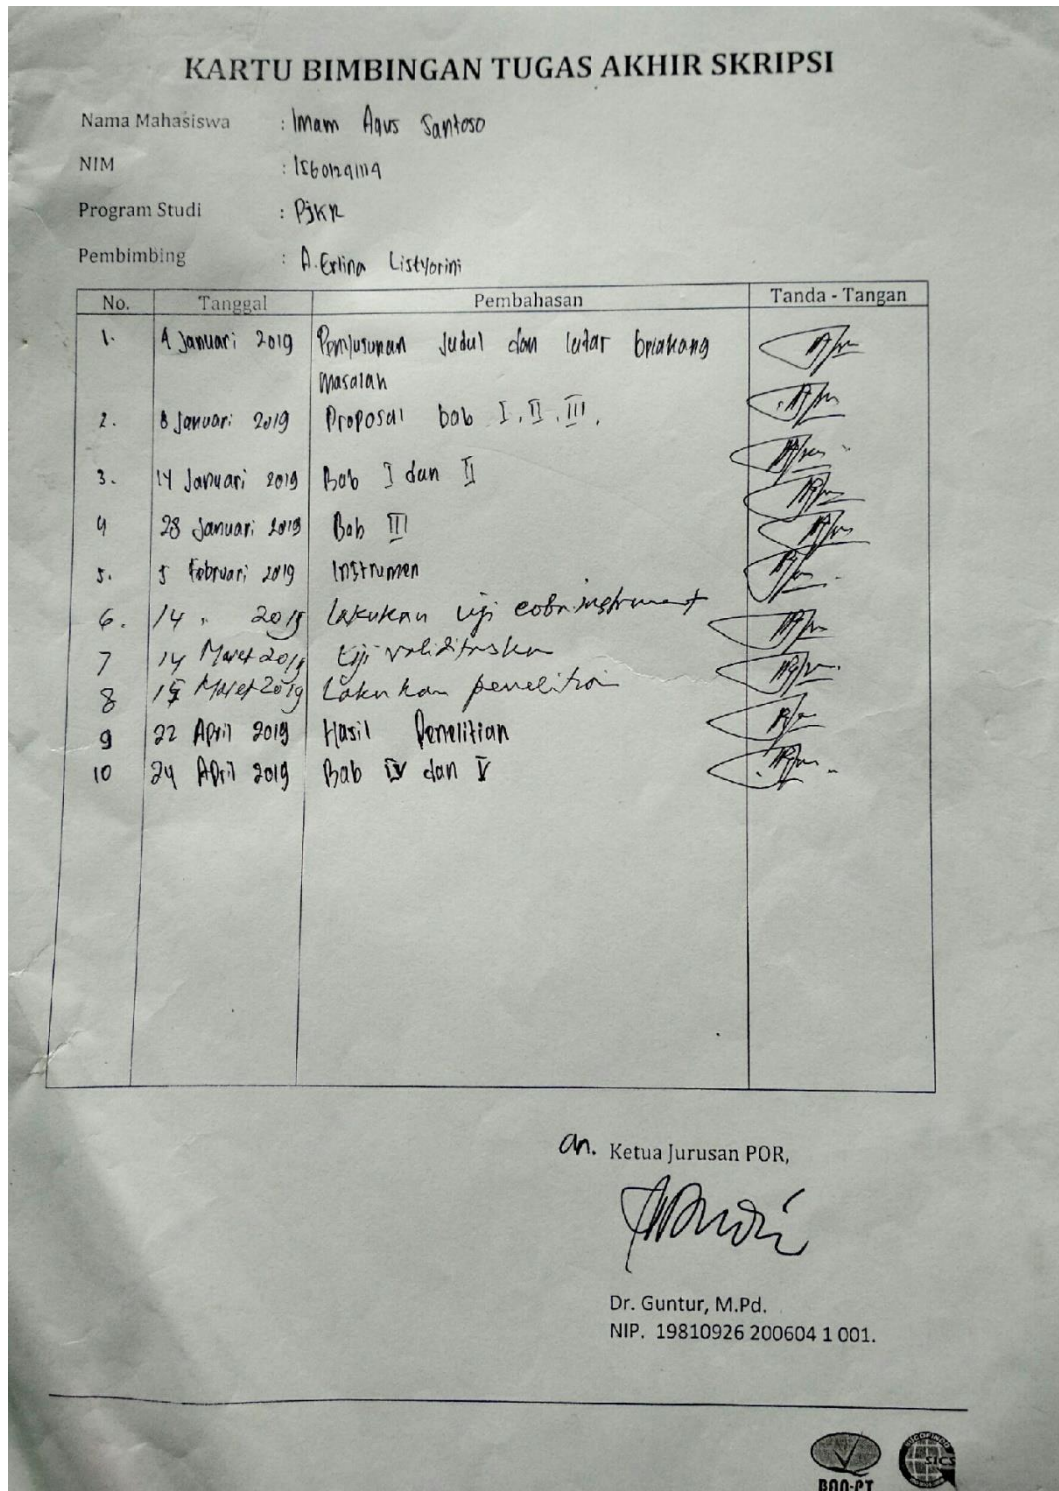 KARTU BIMBINGAN TUGAS AKHIR SKRIPSI
Nama Mahasiswa : Imam Agus Santoso
NIM :
Program Studi : PJKR
Pembimbing : A. Erlina Listyorini
No. Tanggal Pembahasan Tanda - Tangan
1. 4 Januari 2019 Penyusunan Judul dan latar belakang
masalah
2. 8 Januari 2019 Proposal bab I, II, III.
3. 14 Januari 2019 Bab I dan II
4 28 Januari 2019 Bab III
5. 5 Februari 2019 Instrumen
6. 14 " 2019 Lakukan uji coba instrument
7 14 Maret 2019 Uji validitaskan
8 Maret 2019 Lakukan penelitian
9 22 April 2019 Hasil Penelitian
10 24 April 2019 Bab IV dan V
an. Ketua Jurusan POR,
Dr. Guntur, M.Pd.
NIP. 19810926 200604 1 001.
BAN-PT
SICS